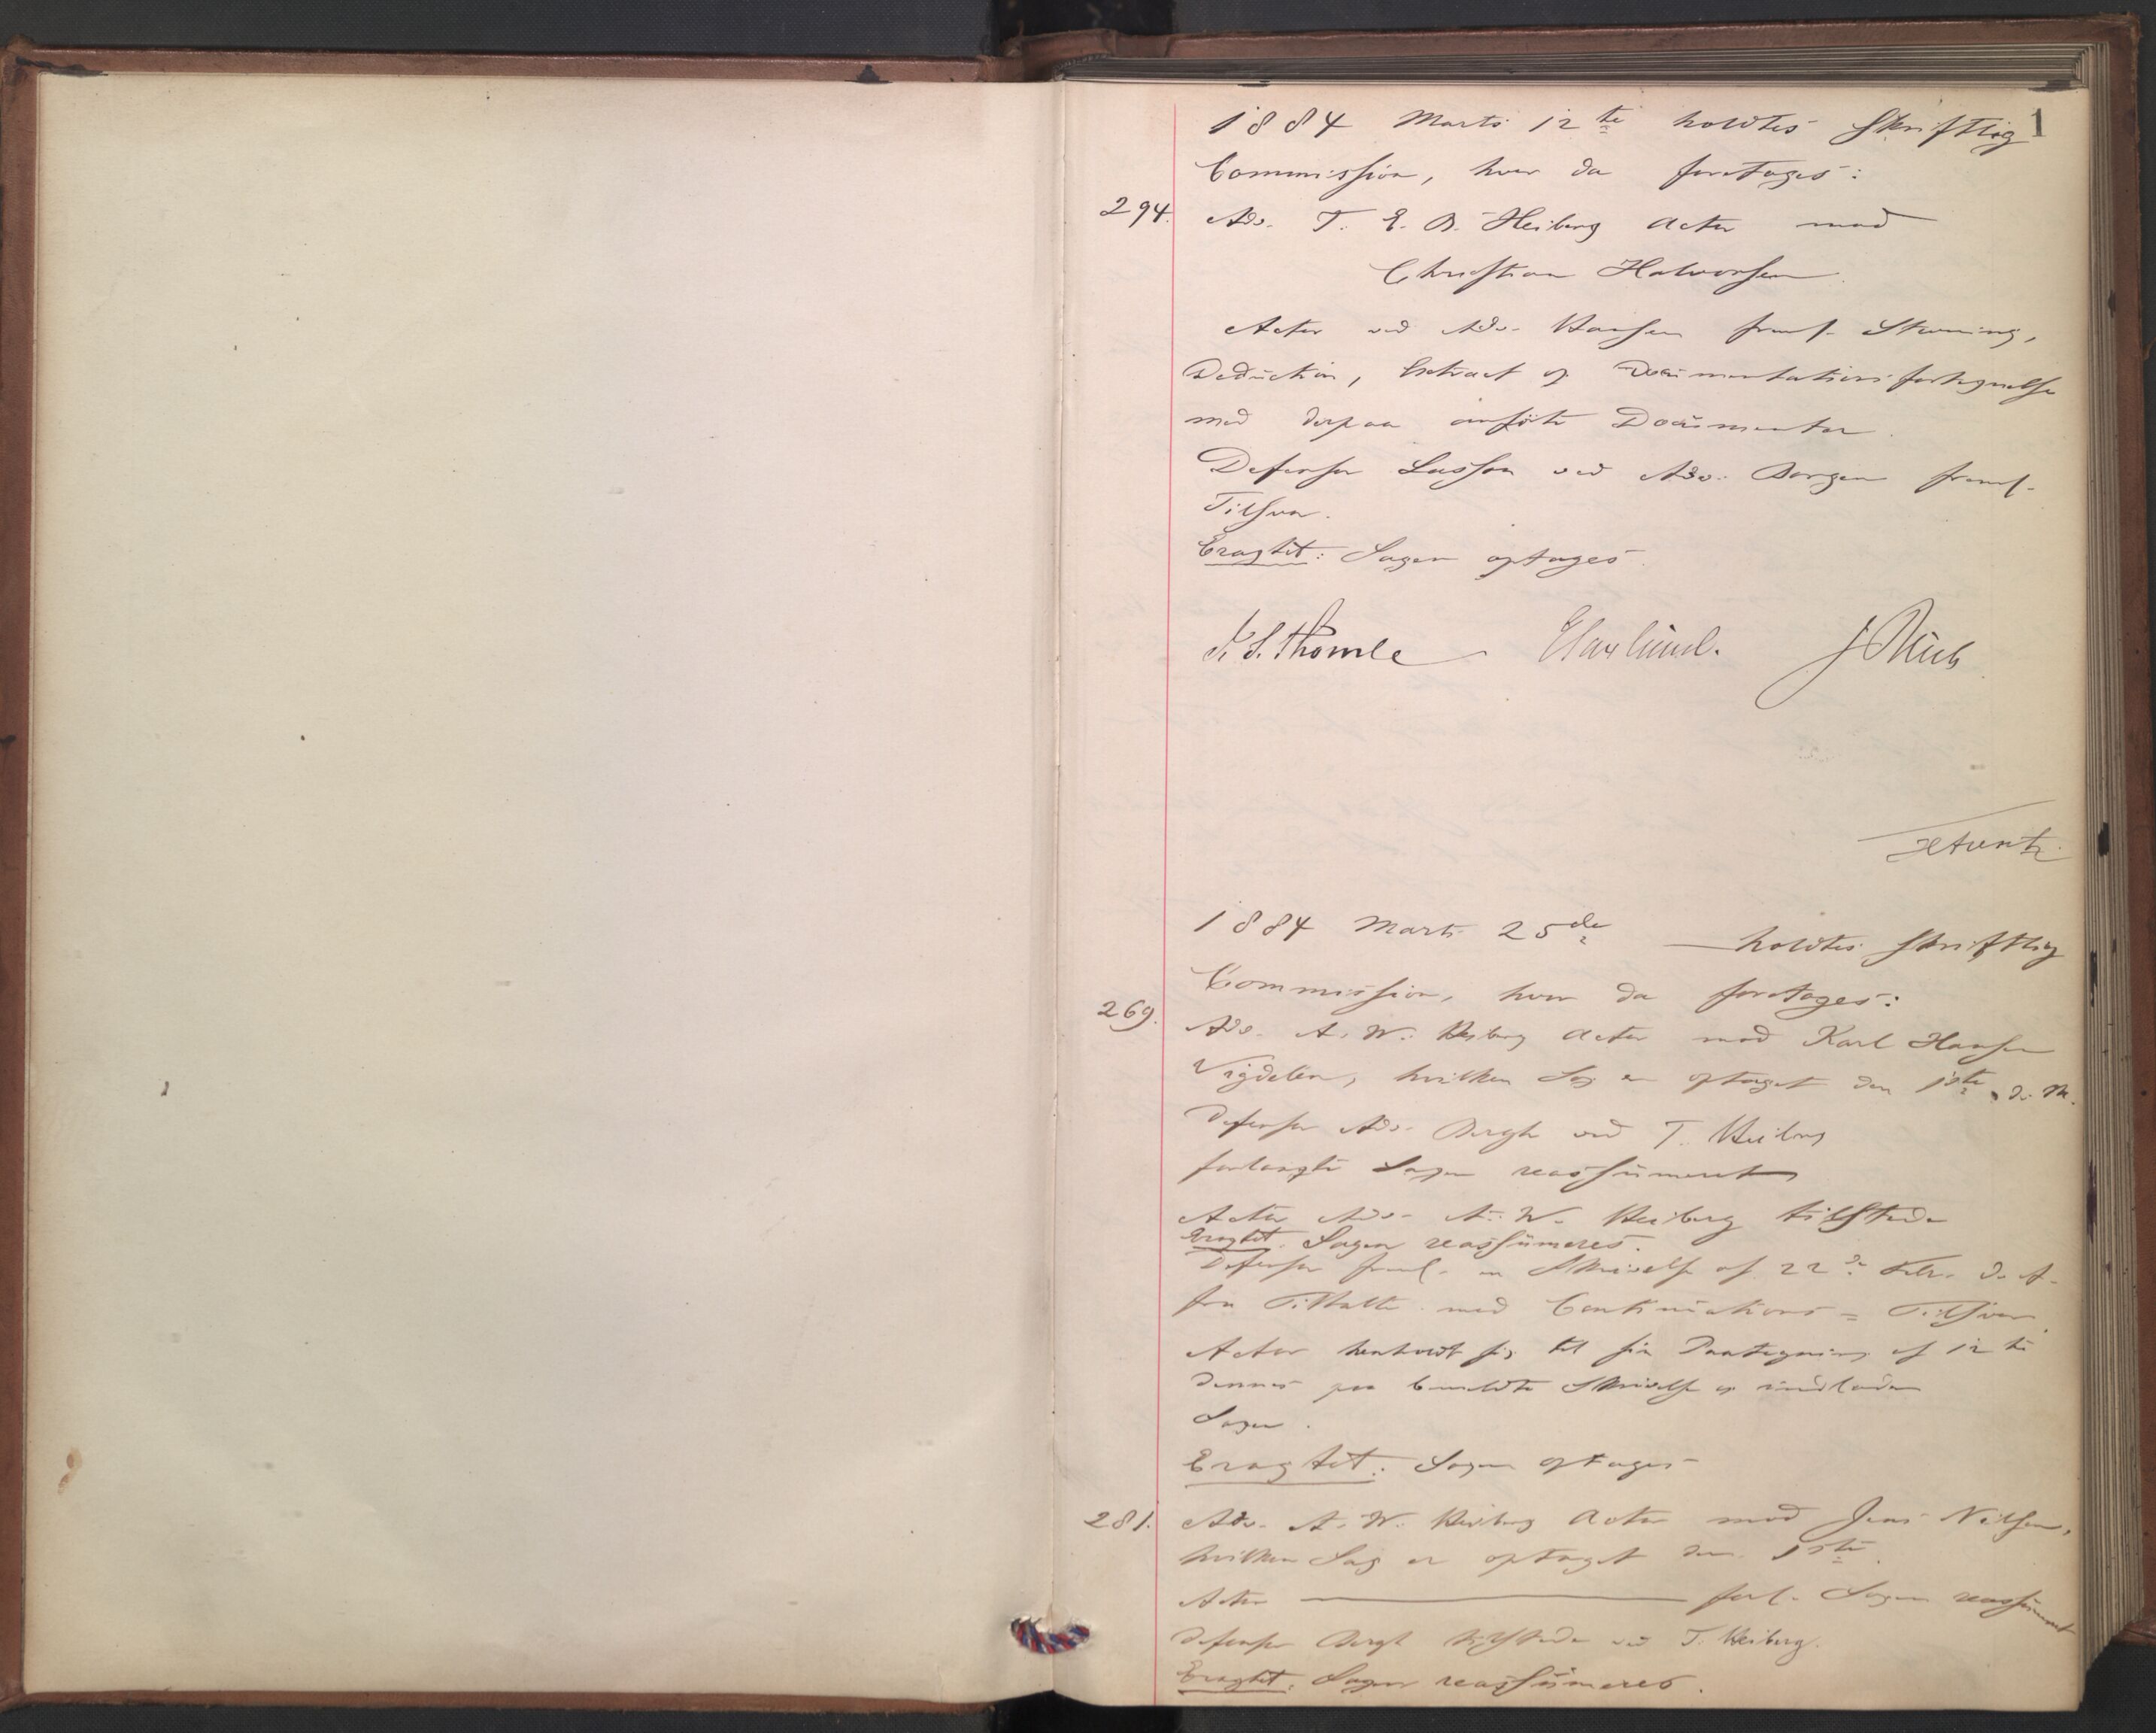 1
1884 Marts 12te holdtes skriftlig
Commission, hvor da foretoges:
294. Adv. T. E. B. Heiberg Actor mod
Christian Halvorsen.
Actor ved Adv. Hansen freml. Stevning,
Deduction, Extract og Documentationsfortegnelse
med derpaa anførte Documenter.
Defensor Lasson ved Adv. Borgen freml.
Tilsvar.
Eragtet: Sagen optages.
J. S. Thomle
1884 Marts 25de holdtes skriftlig
Commission, hvor da foretoges:
269. Adv. A. W. Heiberg Actor mod Karl Hansen
Vigdelen, hvilken Sag er optaget den 1ste d. M.
Defensor Adv. Bergh ved T. Heiberg
forlangte Sagen reassumeret
Actor Adv. A. W. Heiberg tilstede
Eragtet. Sagen reassumeres.
Defensor freml. en Skrivelse af 22de Febr. d. A.
fra Tiltalte med Continuations-Tilsvar.
Actor henholdt sig til sin Paategning af 12te
dennes paa bemeldte Skrivelse og indlod
Sagen.
Eragtet: Sagen optages
281. Adv. A. W. Heiberg Actor mod Jens Nilsen,
hvilken Sag er optaget den 1ste.
Actor forl. Sagen reassumeret
Defensor Bergh tilstede ved T. Heiberg.
Eragtet: Sagen reassumeres.